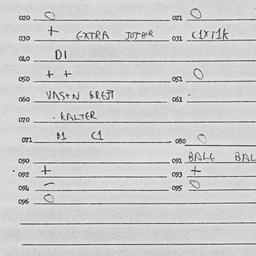 020 O 021 O
030 + EXTRA JOTBER 031 C1XT1K
040 D1
050 + + 051 O
060 VASTN BREJT 061 -
070 . KALTER
071 D1 C1 080 O
090 091 BALE BAL
092 + 093 +
094 - 095 O
096 O